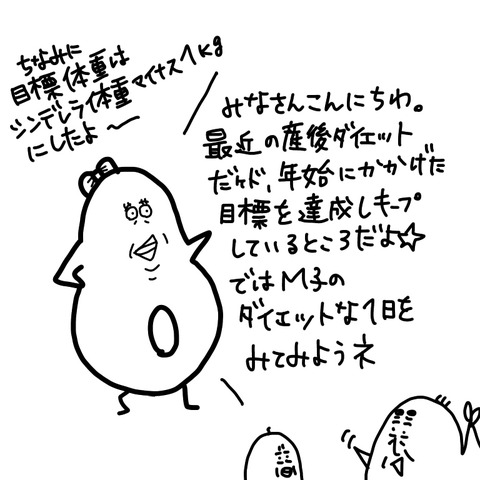 ちなみに
目標体重は
シンデレラ体重マイナス1kg
にしたよ〜
みなさんこんにちわ。
最近の産後ダイエット
だけど、年始にかかげた
目標を達成しキープ
しているところだよ☆
ではM子の
ダイエットな1日を
みてみようネ